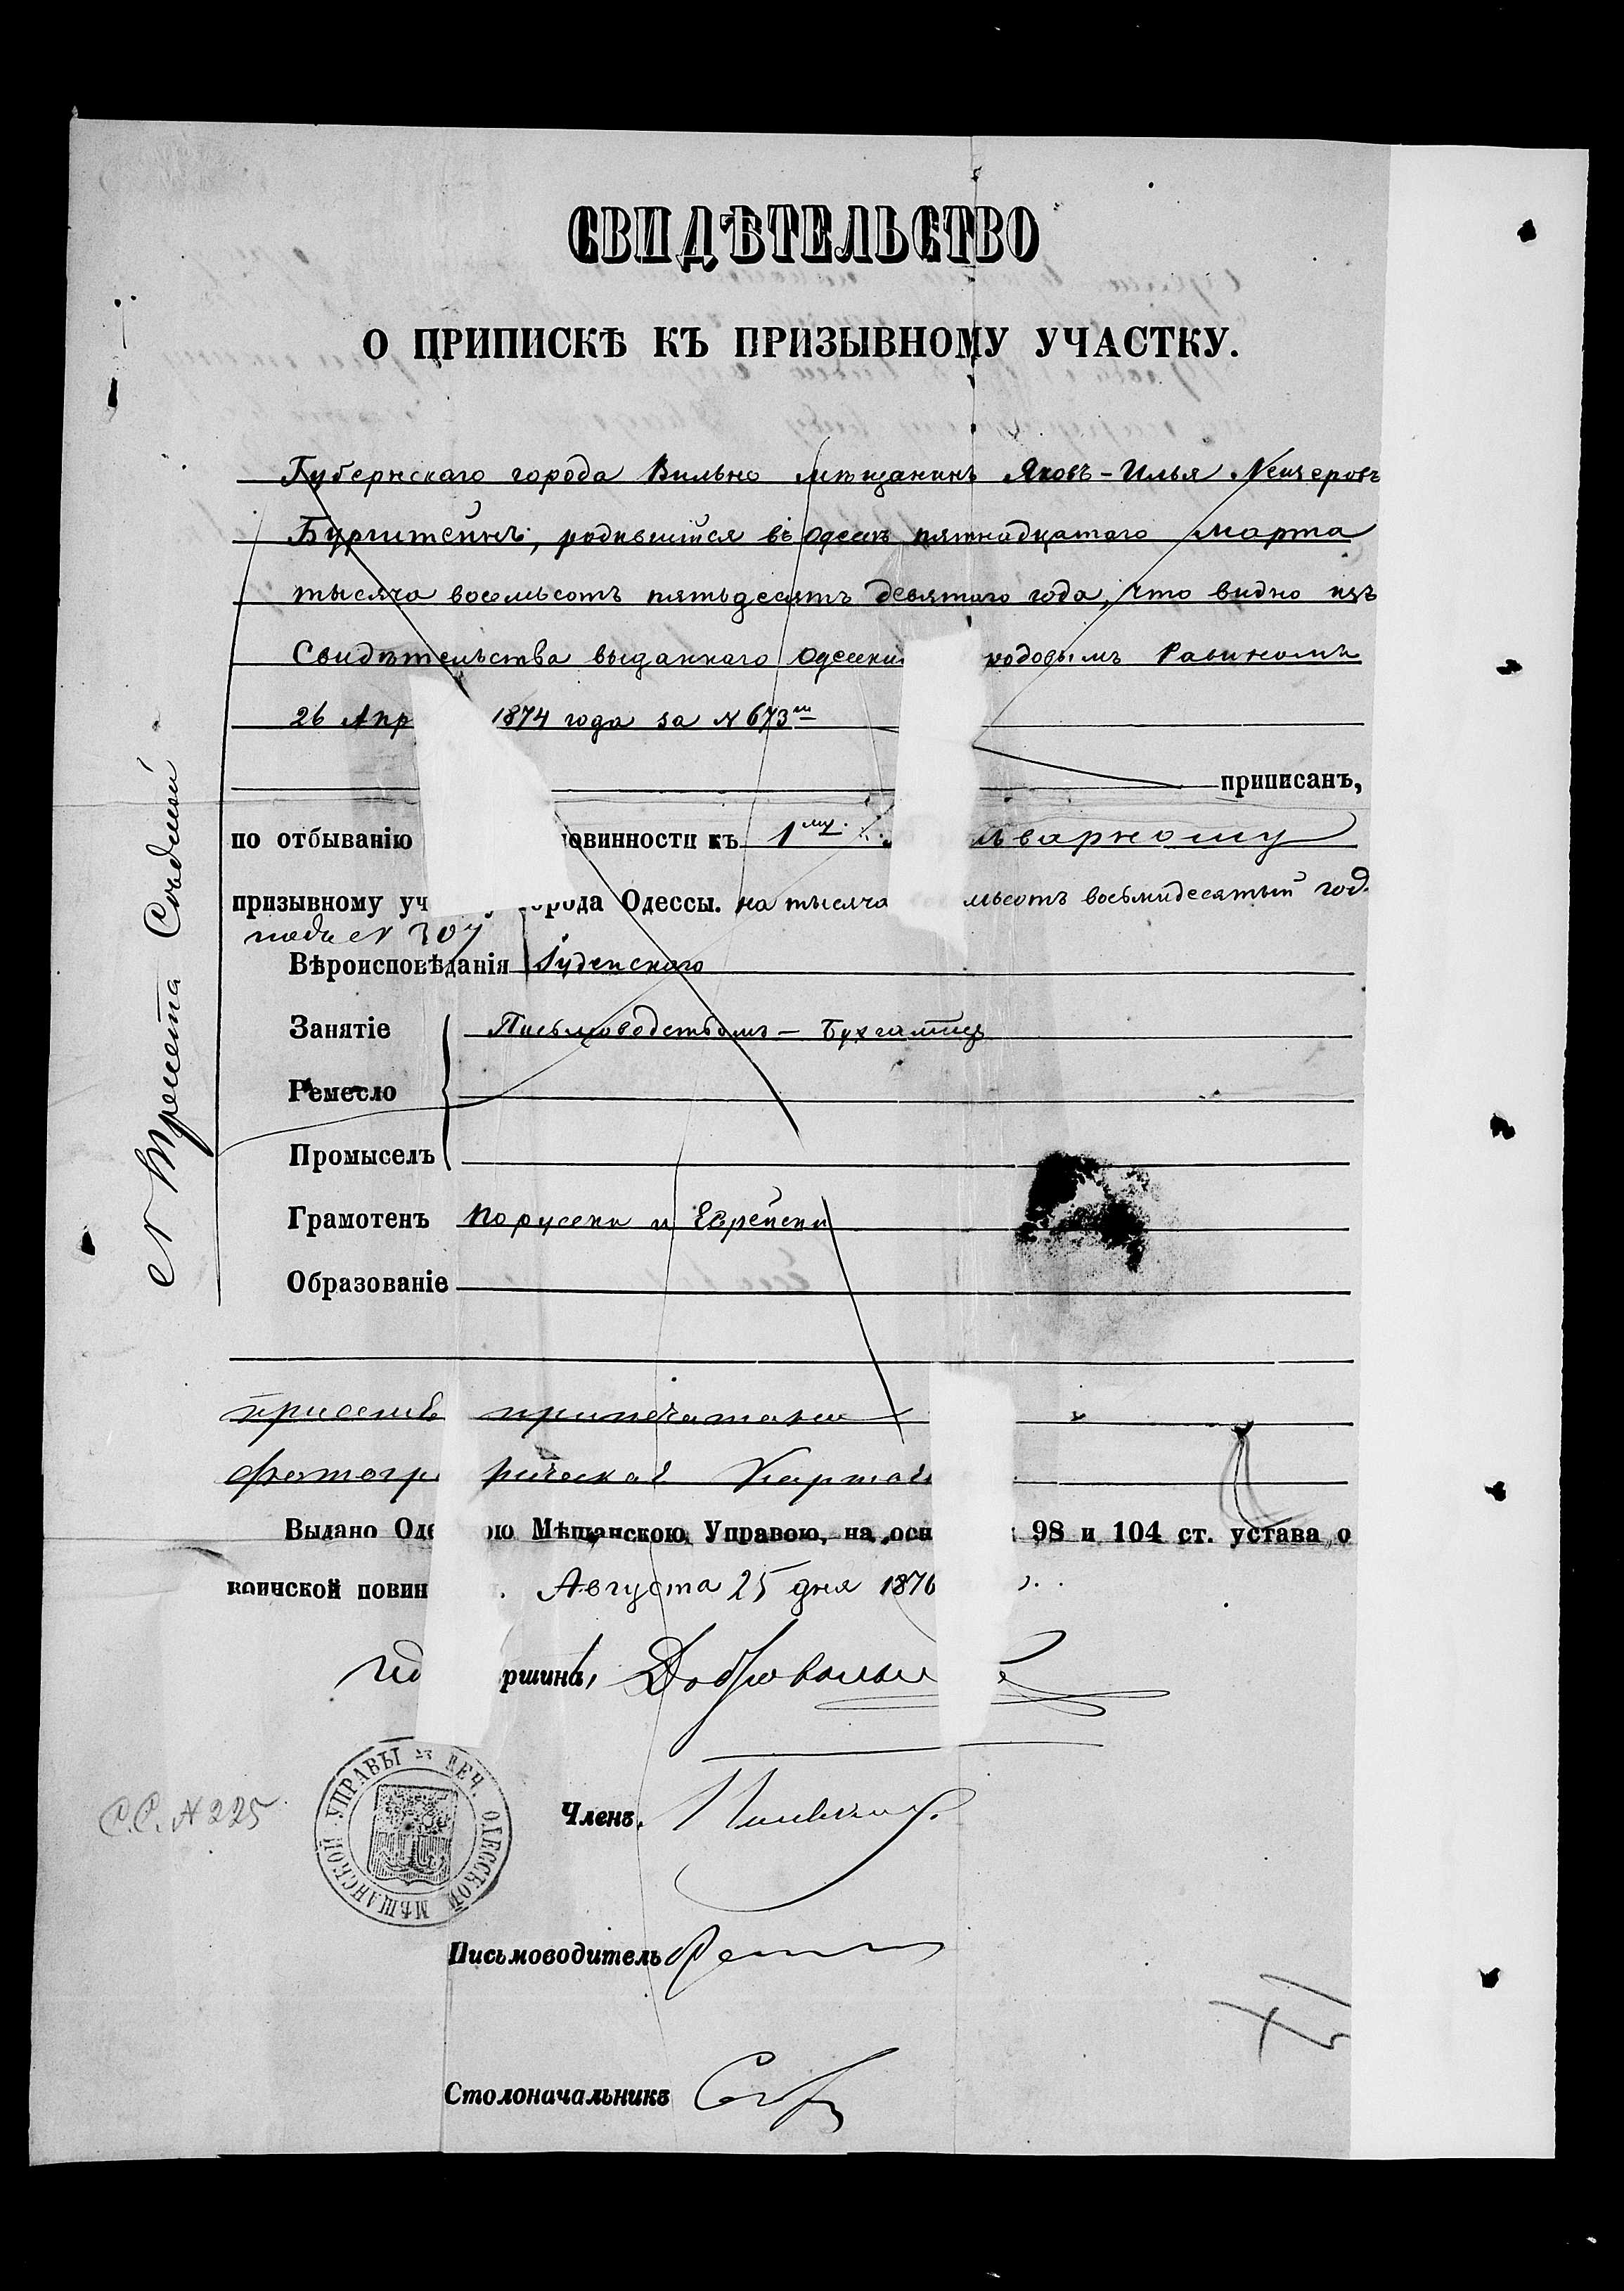 СВИДѢТЕЛЬСТВО
О ПРИПИСКѢ КЪ ПРИЗЫВНОМУ УЧАСТКУ.
Губернскаго города Вильно мѣщанинъ Яковъ-Илья
Бургштейнъ, родившійся въ Одессѣ пятнадцатаго Марта
тысяча восемьсотъ пятьдесятъ девятаго года, что видно изъ
Свидѣтельства выданнаго Одесски родовымъ Равиномъ
26 Апр 1874 года за N 673
приписанъ,
по отбыванію овинности къ 1му льварному
призывному уч у города Одессы. на тысяча мьсотъ восьмидесятый год
подъ N 307
Вѣроисповѣданія Іудейскаго
Занятіе Письмоводствомъ - Бухгалтер
Ремесло
Промыселъ
Грамотенъ По русски и Еврейски
Образованіе
N Триста Седьмой
при семъ припечатана
фотогр ическая карточ
Выдано Оде ою Мѣщанскою Управою, на осн 98 и 104 ст. устава о
воинской повин . Августа 25 дня 1876
ршина, Добровольс
УПРАВЫ ПЕЧ. ОДЕССКОЙ МѢЩАНСКОЙ
С.С. N 225
Членъ.
Письмоводитель
Столоначальникъ